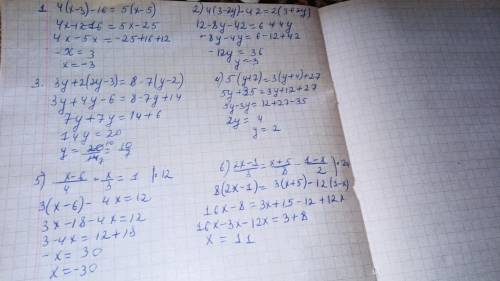 1. 4(x-3)-16 = 5(x-5)
4x-12-16 = 5x-25
4x-5x = -25+16+12
-x = 3
x = -3
2) 4(3-2y)-42 = 2(3+2y)
12-8y-42 = 6+4y
-8y-4y = 6-12+42
-12y = 36
y = -3
3. 3y+2(2y-3) = 8-7(y-2)
3y+4y-6 = 8-7y+14
7y+7y = 14+6
14y = 20
4) 5(y+7) = 3(y+4)+27
5y+35 = 3y+12+27
5y-3y = 12+27-35
2y = 4
y = 2
5) x-6/4 - x/3 = 1 |·12
3(x-6) - 4x = 12
3x-18-4x = 12
3-4x = 12+18
-x = 30
x = -30
6) 2x-1/3 = x+5/8 - 1-x/2 |·24
8(2x-1) = 3(x+5)-12(1-x)
16x-8 = 3x+15-12+12x
16x-3x-12x = 3+8
x = 11